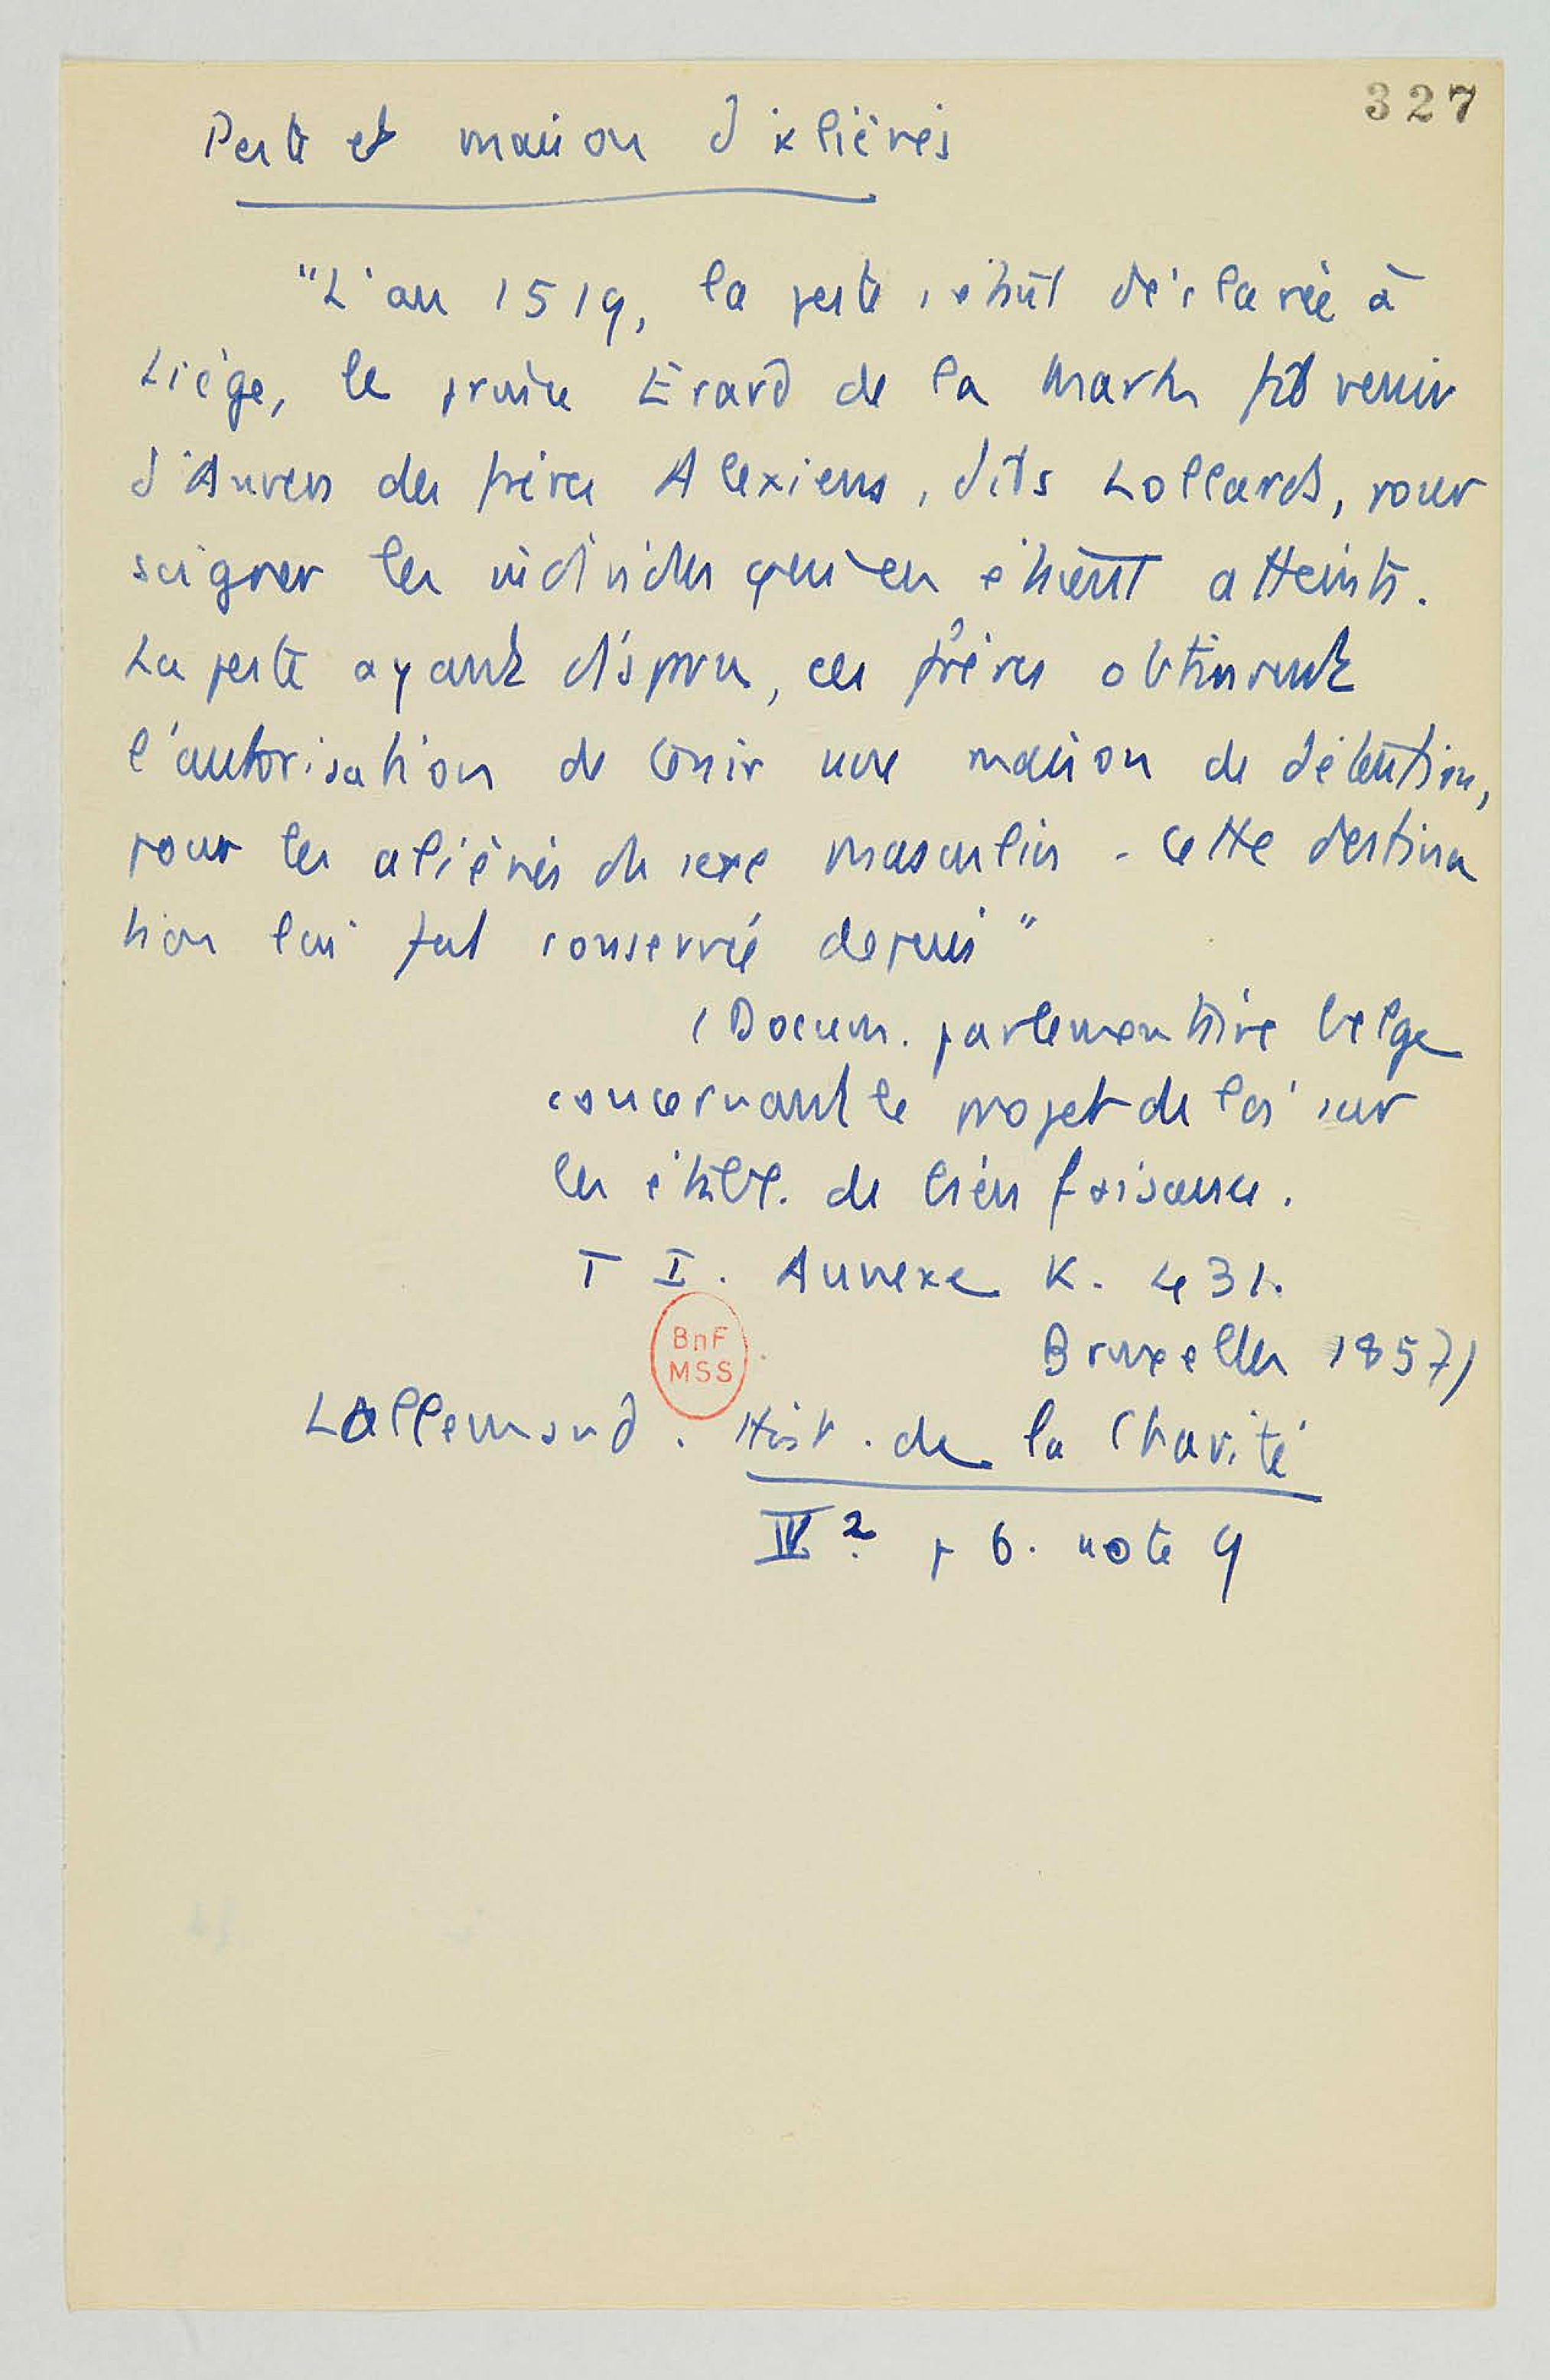 327
Peste et maison d'aliénés
"L'an 1519, la peste s'étant déclarée à
Liège, le prince Erard de la Mark fit venir
d'Anvers des frères Alexiens, dits Lollards, pour
soigner les individus qui en étaient atteints.
La peste ayant disparu, ces frères obtinrent
l'autorisation de tenir une maison de détention,
pour les aliénés du sexe masculin - Cette destina
tion lui fut conservée depuis"
(Docum. parlementaire belge
concernant le projet de loi sur
les établ. de bienfaisance.
T I. Annexe K. 431.
Bruxelles 1857)
BnF
MSS
Lallemand. Hist. de la Charité
IV 2. p 6. note 9